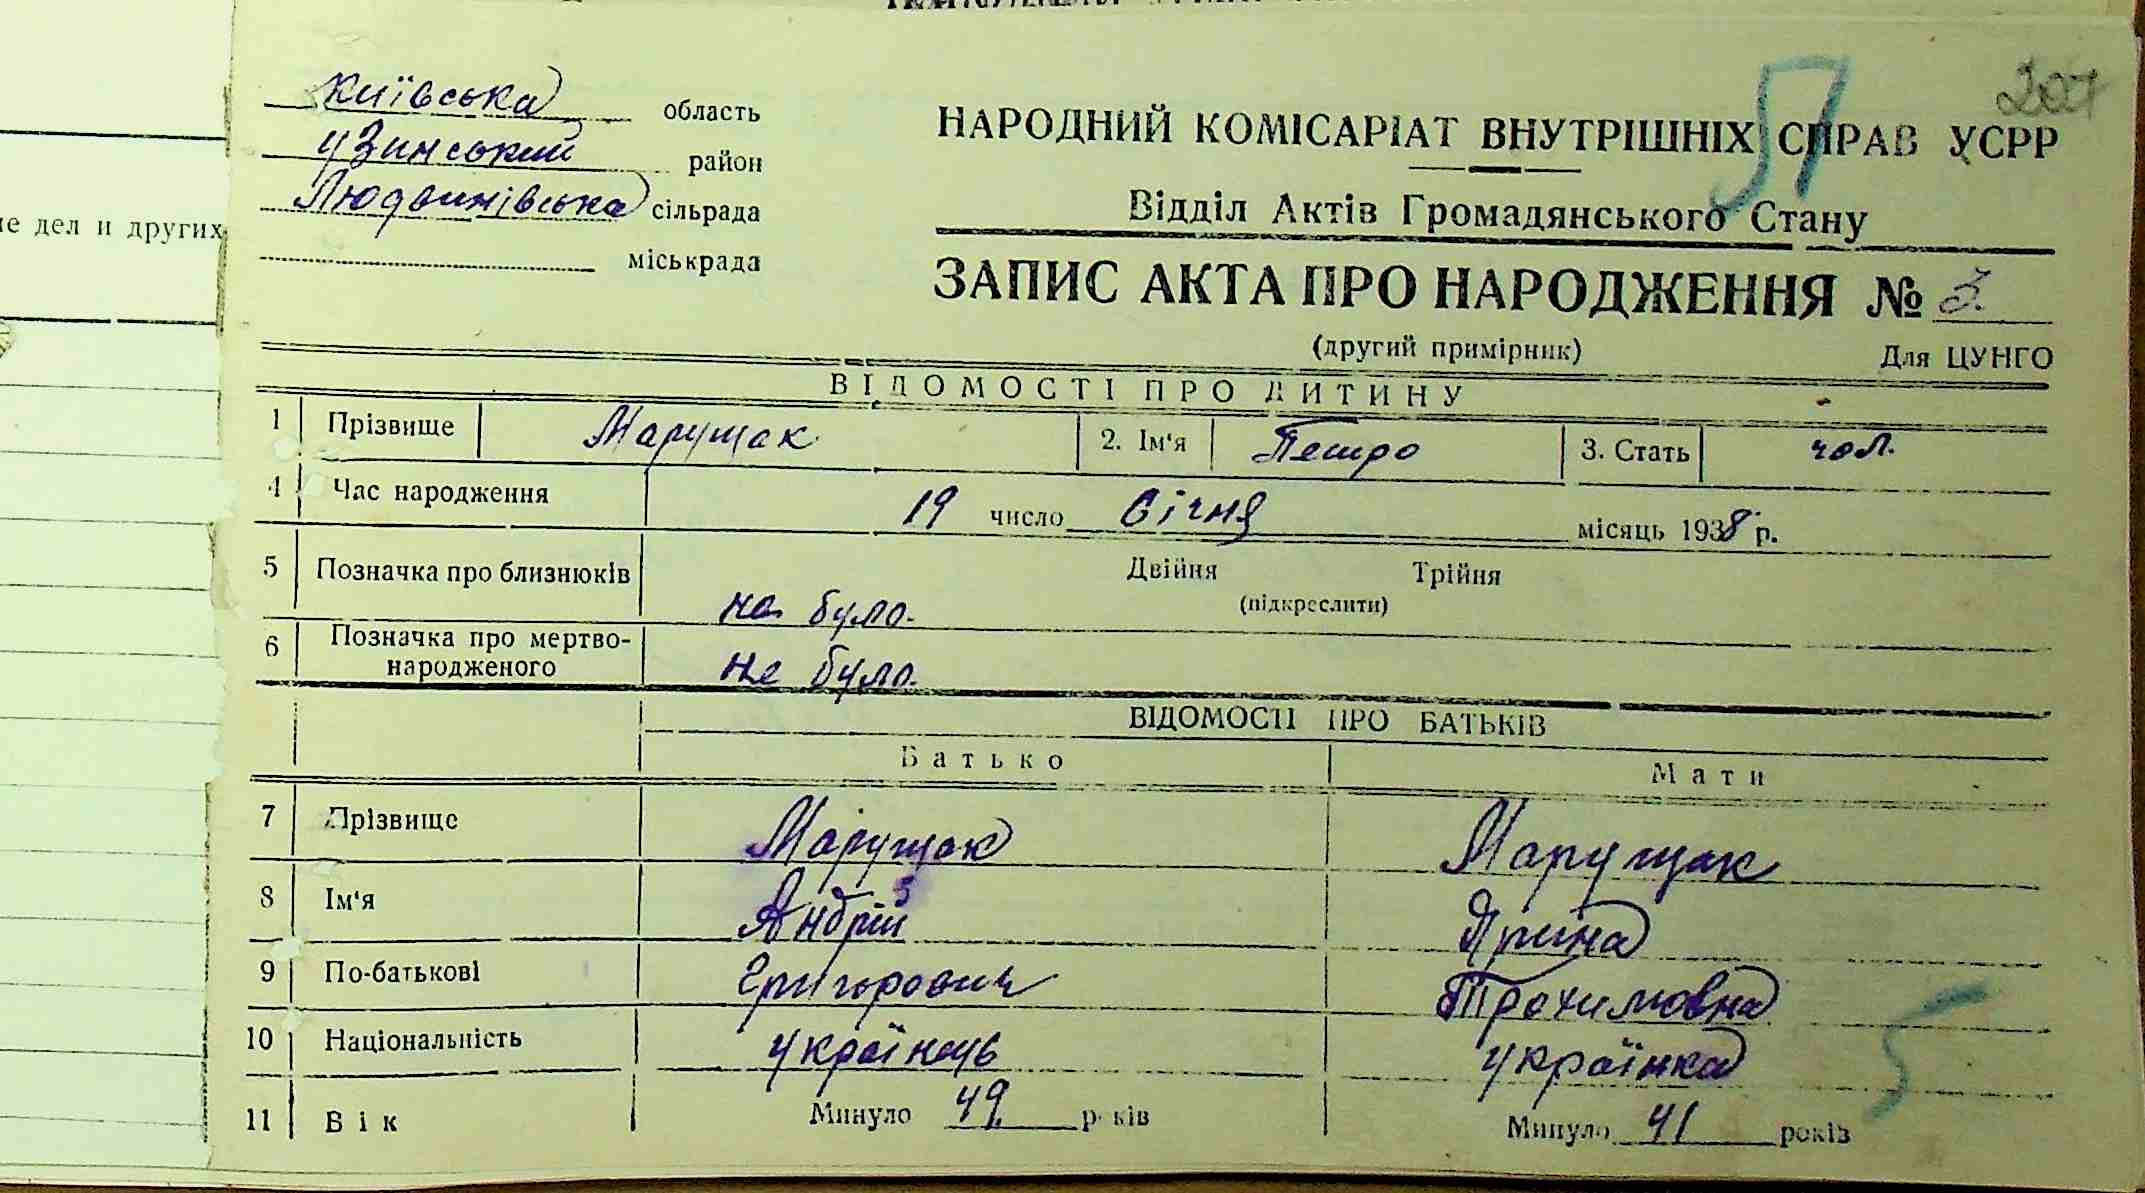 207
57
Київська область
Узинський район
Людвинівська сільрада
міськрада
НАРОДНИЙ КОМІСАРІАТ ВНУТРІШНІХ СПРАВ УСРР
Відділ Актів Громадянського Стану
ЗАПИС АКТА ПРО НАРОДЖЕННЯ № 3.
(другий примірник) Для ЦУНГО
не дел и других
ВІДОМОСТІ ПРО ДИТИНУ
1 Прізвище Марущак 2. Ім'я Петро 3. Стать чол.
4 Час народження 19 число Січня місяць 1938 р.
5 Позначка про близнюків Двійня Трійня
не було. (підкреслити)
6 Позначка про мертво-
народженого не було.
ВІДОМОСТІ ПРО БАТЬКІВ
Батько Мати
7 Прізвище Марущак Марущак
8 Ім'я Андрій Ярина
9 По-батькові Григорович Трохимовна
10 Національність українець українка
5
11 Вік Минуло 49 років Минуло 41 років